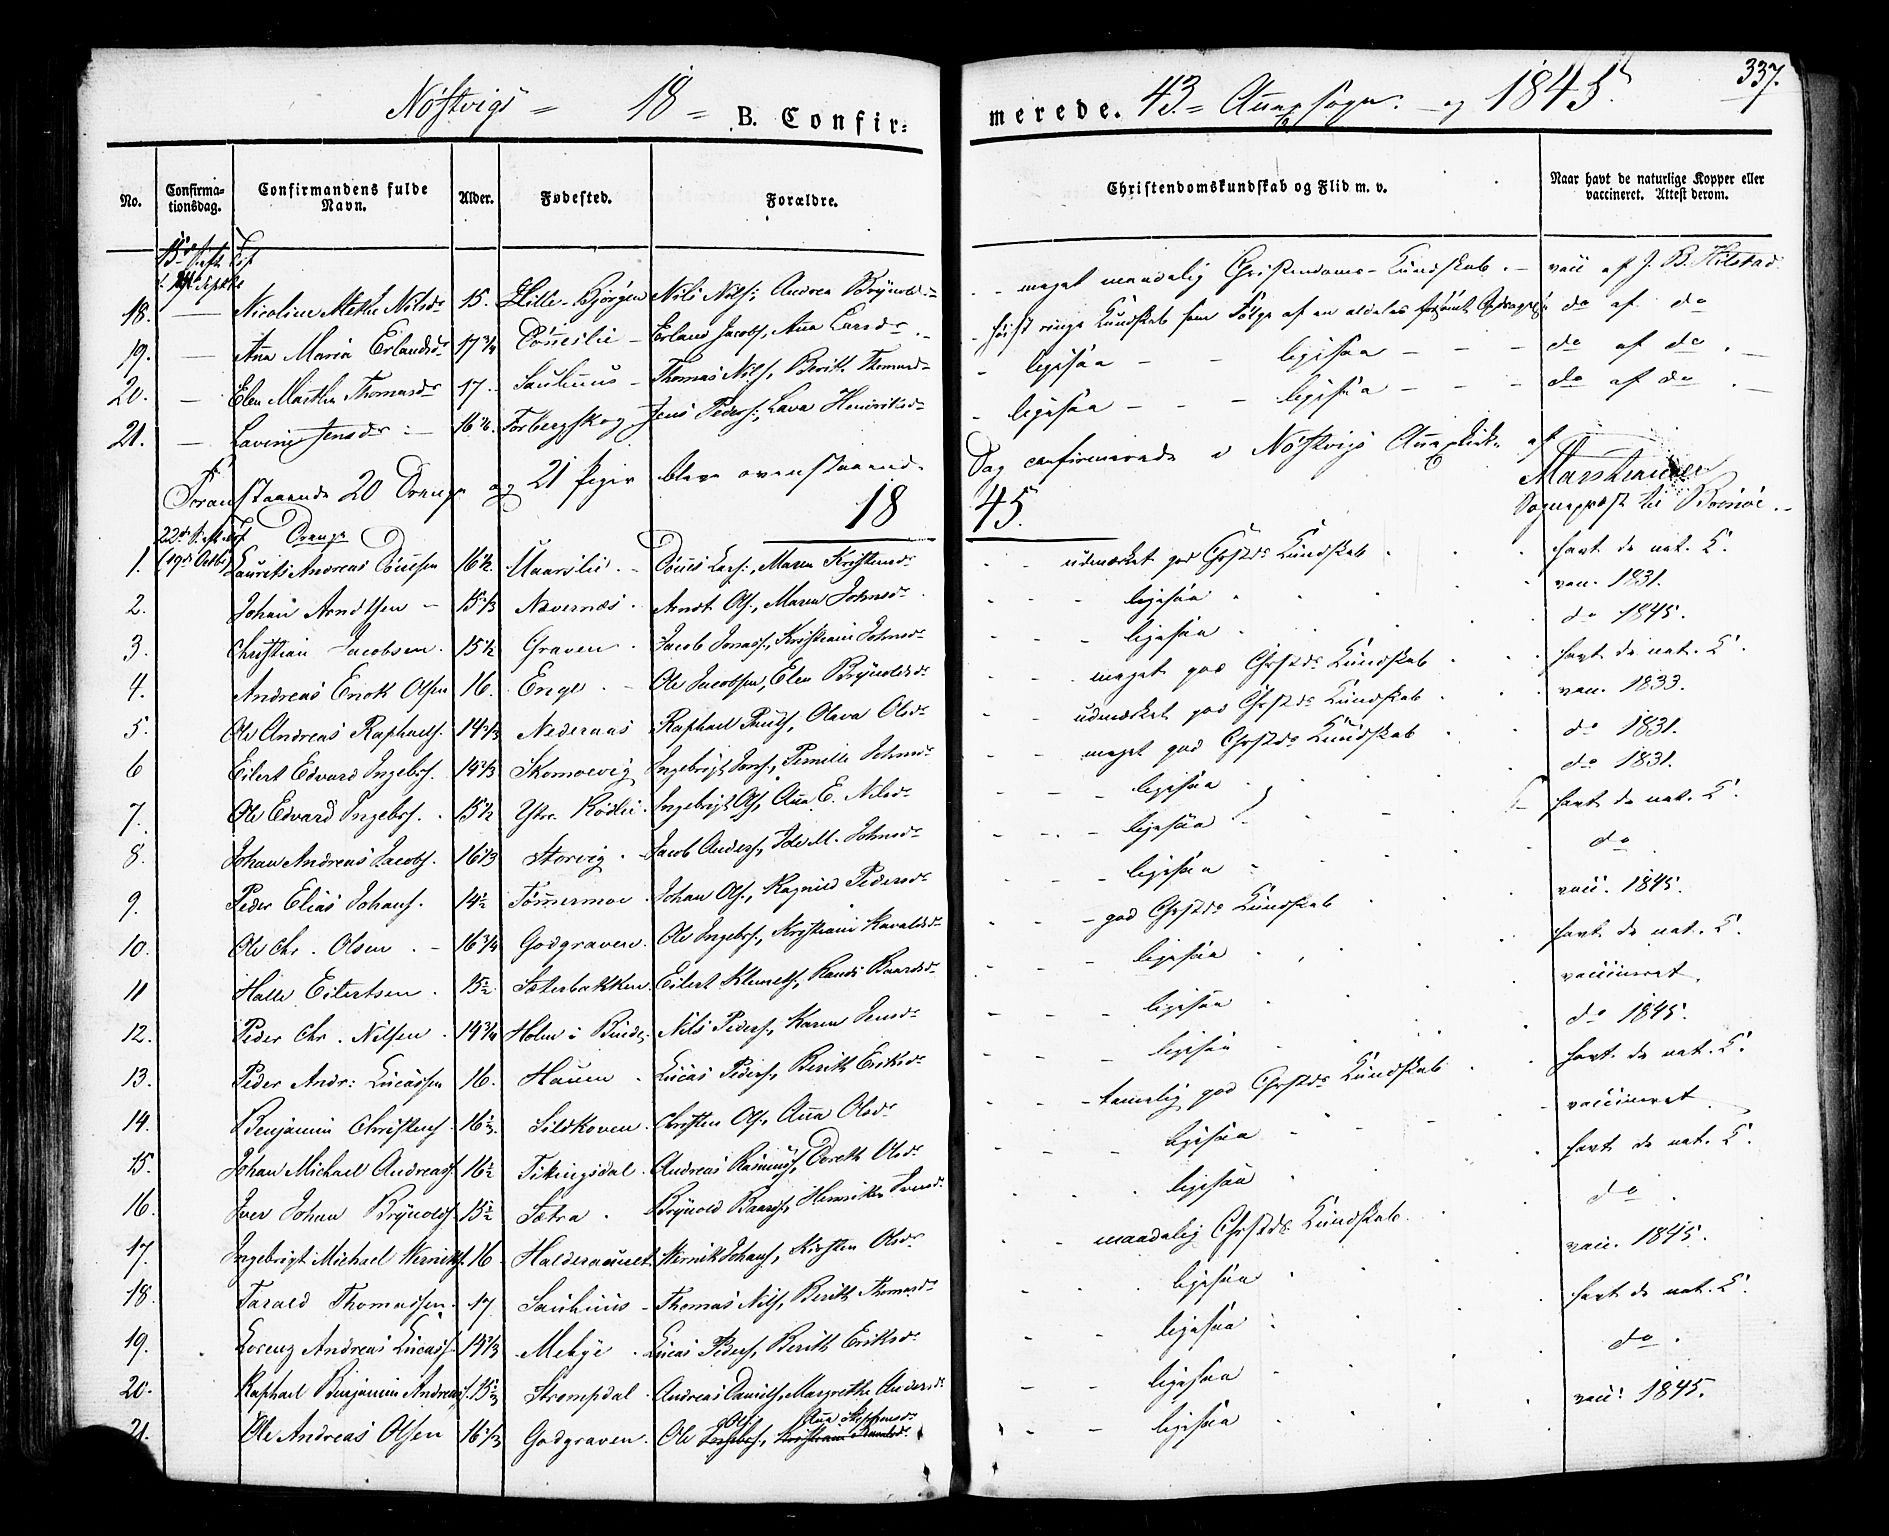 Nøstvigs = 18 = B. Confir-
merede. 43 = Annexsogn. og 1845. 337.
No. Confirma-tionsdag. Confirmandens fulde Navn. Alder. Fødested. Forældre. Christendomskundskab og Flid m. v. Naar havt de naturlige Kopper eller vaccineret. Attest derom.
18. — Nicoline Methe Nilsdr 15. Lille-Bjørgen Nils Nils: Andrea Brynolds meget maadelig Christendoms-Kundskab. — vacc af J. B. Hilstad
19. — Ana Maria Erlandsdr 17 3/4 Erland Jacobs, Ana Larsdr høist ringe Kundskab som Følge af en aldeles forsømt do af do
20. — Elen Martha Thomasdr 17. Sauhuus — Thomas Nils, Berit Thomasd — ligesaa — — ligesaa — — — do af do. —
21. — Lavine Jensdr — 16 1/2. Forbergskog Jens Peders:, Lava Henriksd — ligesaa — — ligesaa — — — do af do. —
Foranstaaende 20 Drenge og 21 Piger bleve ovenstaaende Dag confirmerede i Nøstvigs Annexkirke af
Sognepræst til Brønøe.
18 45.
Drenge
1. (19de Octbr) Laurits Andreas 16 1/2. Lars:, Maren Kristensdr udmærket god Chrstds Kundskab havt de nat. K.
2. Johan Arndtsen — 15 1/3 Nævernæs. Arndt Ols, Maren Johnsdr. ligesaa vac. 1831.
3. Christian Jacobsen. 15 1/2 Graven. Jacob Jonass, Kristiane Johnsdr ligesaa do 1845.
4. Andreas Enok Olsen 16. Enge. — Ole Jacobsen, Elen Brynoldsdr meget god Chrstds Kundskab havt de nat. K.
5. Ole Andreas Raphaels. 14 2/3 Nedernaas Raphael Pauls, Olava Olsdr udmærket god Chrstds Kundskab vac. 1833.
6 Eilert Edvard Ingebrs. 14 2/3 Skomovig Ingebrigt Jons, Pernille Johnsdr meget god Chrstds Kundskab do 1831.
7. Ole Edvard Ingebrs. 15 1/2 Ystr. Rødli. Ingebrigt Ols, Ana E. Nilsdr ligesaa do 1831.
8. Johan Andreas Jacobs. 16 1/3 Storvig. — Jacob Anders, Ide M. Johnsdr ligesaa havt de nat. K.
9. Peder Elias Johans. 14 1/2 Tømmermoe Johan Ols, Ragnild Pedersdr ligesaa do
10. Ole Chr. Olsen. — 16 3/4 Godgraven. Ole Ingebrs, Kristiane Haraldsdr god Chrstds Kundskab vacc. 1845.
11 Halle Eilertsen. 15 1/2 Sæterbakken Eilert Klemets, Randi Baardsdr ligesaa havt de nat. K.
12. Peder Chr. Nilsen. 14 3/4 Holm i Bindal Nils Peders, Karen Jensdr ligesaa vaccineret.
13. Peder Andr: Lucassen 16. Hauen. Lucas Peders, Berith Eriksdr ligesaa do 1845.
14. Benjamin Christens. 16 Sildkoven. Christen Ols, Ana Olsdr tamelig god Chrstds Kundskab havt de nat. K.
15. Johan Michael Andreass. 16 1/2 Andreas Rasmus, Doreth Olsdr ligesaa vaccineret
16. Iver Johan Brynolds. 15 1/2 Sætra. Brynold Baards, Henrikke Iversdr ligesaa havt de nat. K.
17. Ingebrigt Michael Werniks. 16 Haldoraunet. Wernik Johans, Kirsten Olsdr maadelig Chrstds Kundskab. do
18. Tarald Thomassen. 17 Sauhuus — Thomas Nils, Berith Thomasdr ligesaa vacc. 1845.
19. Lorenz Andreas Lucass 14 2/3 Mebye. Lucas Peders, Berith Eriksdr ligesaa havt de nat. K.
20. Raphael Benjamin Andreass. 15 Strompdal. Andreas Daniels, Margrethe Andersdr ligesaa do.
21. Ole Andreas Olsen 16 1/3 Godgraven. Ole Ols, Ana Stephensdr. ligesaa vacc: 1845.